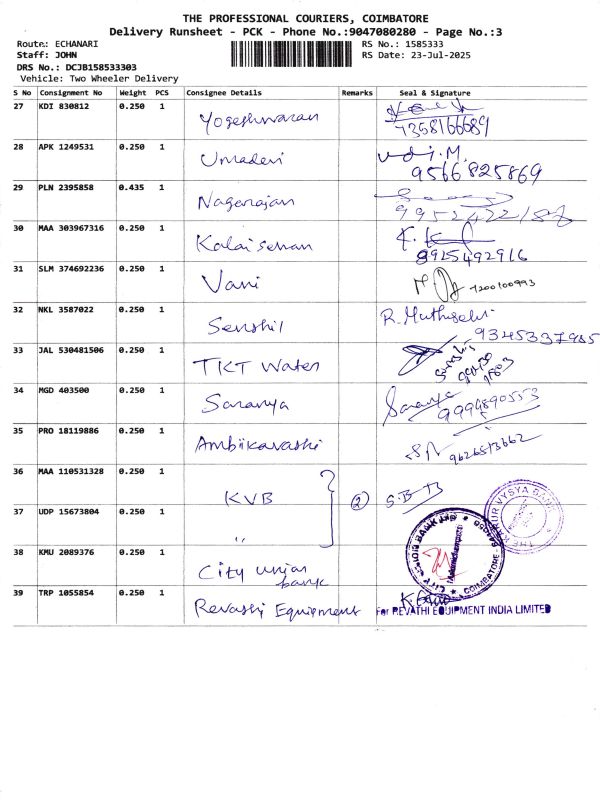 THE PROFESSIONAL COURIERS, COIMBATORE
Delivery Runsheet - PCK - Phone No.:9047080280 - Page No.:3
Route: ECHANARI RS No.: 1585333
Staff: JOHN RS Date: 23-Jul-2025
DRS No.: DCJB158533303
Vehicle: Two Wheeler Delivery
S No Consignment No Weight PCS Consignee Details Remarks Seal & Signature
27 KDI 830812 0.250 1 Yogeshwaran
7358166689
28 APK 1249531 0.250 1 Umadevi
9566825869
29 PLN 2395858 0.435 1 Nagarajan
30 MAA 303967316 0.250 1 Kalaiselvan
8925492916
31 SLM 374692236 0.250 1 Vani 7200100993
32 NKL 3587022 0.250 1 Senthil R. Muthuselvi
9345337985
33 JAL 530481506 0.250 1 TKT Water
34 MGD 403500 0.250 1 Saranya Saranya
9994890553
35 PRO 18119886 0.250 1 Ambikavathi 9626513662
36 MAA 110531328 0.250 1 KVB (2) S.B
37 UDP 15673804 0.250 1 "
38 KMU 2089376 0.250 1 City union bank
CITY UNION BANK LTD COIMBATORE
THE KARUR VYSYA BANK
39 TRP 1055854 0.250 1 Revathi Equipment
For REVATHI EQUIPMENT INDIA LIMITED